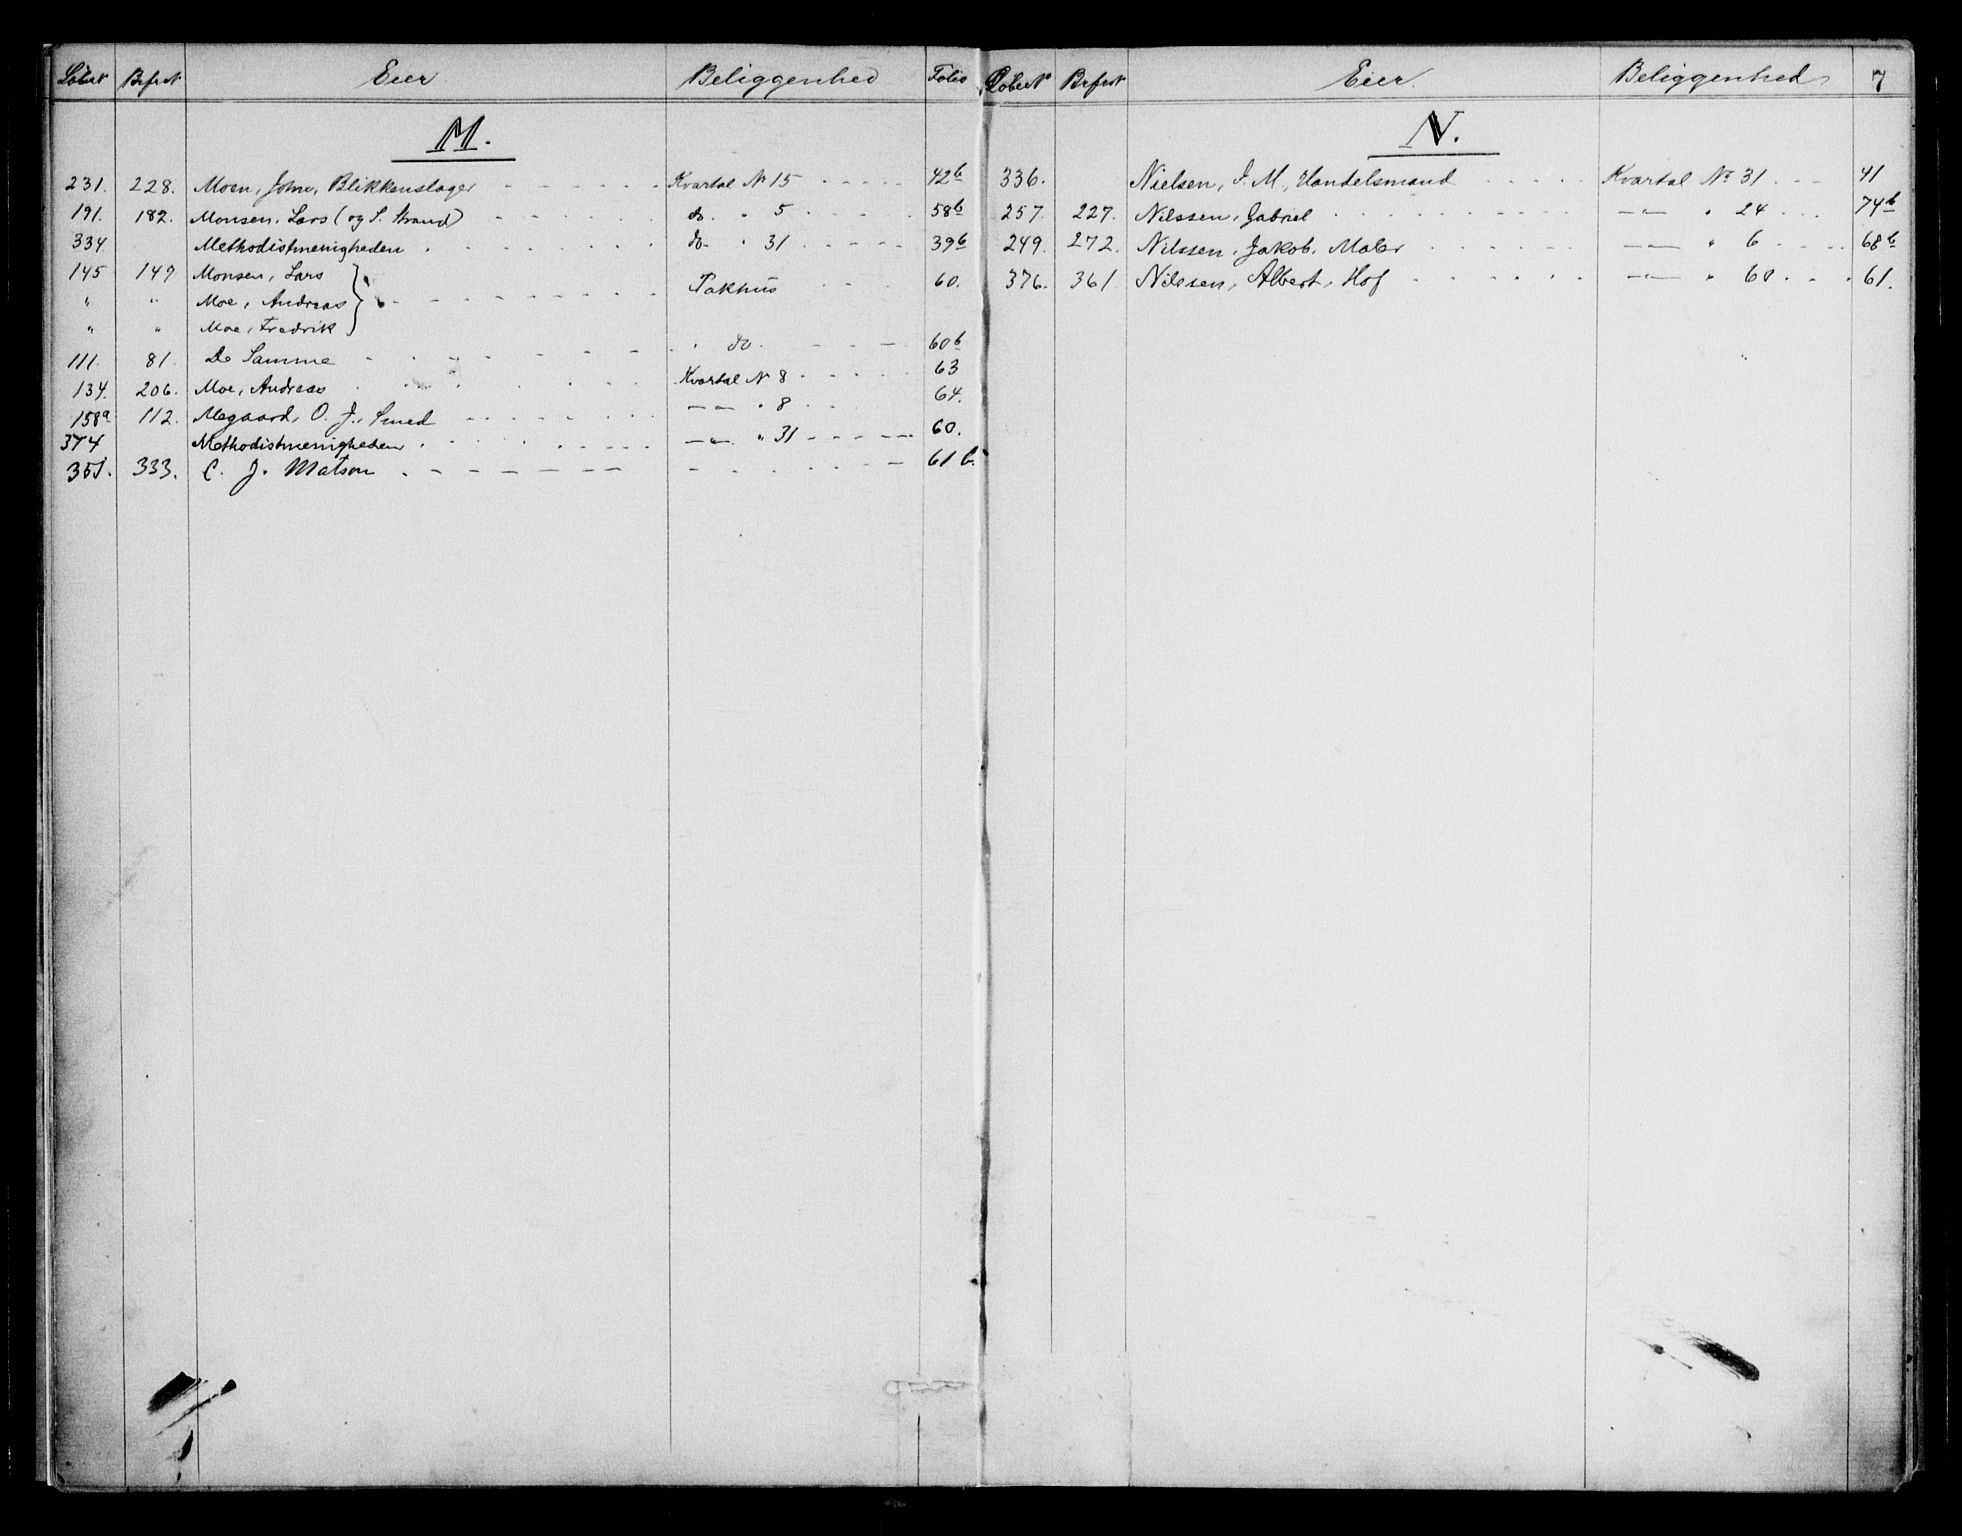 Löbe№ Brfr№ Eier Beliggenhed Folio
M.
231. 228. Moen, John, Blikkenslager Kvartal № 15 42b
191. 182. Monsen, Lars (og S. Strand) do. " 5 58b
334 Methodistmenigheden do. " 31 39b
145 147 Monsen, Lars } Pakhus 60.
" " Moe, Andreas }
" " Moe, Fredrik }
111. 81. De Samme " do. 60b
134. 206. Moe, Andreas Kvartal № 8 63
158a 112. Megaard, O. J., Smed —"— " 8 64.
374 Methodistmenigheden —"— " 31 60.
351. 333. C. J. Matson 61 b.
Löbe№ Brfr№ Eier. Beliggenhed 7
N.
336. Nielsen, I. M., Handelsmand Kvartal № 31 41
257. 227. Nilssen, Gabriel —"— " 24 74b
249. 272. Nilssen, Jakob, Maler —"— " 6 68b
376. 361 Nilssen, Albert, Hof —"— " 60 61.